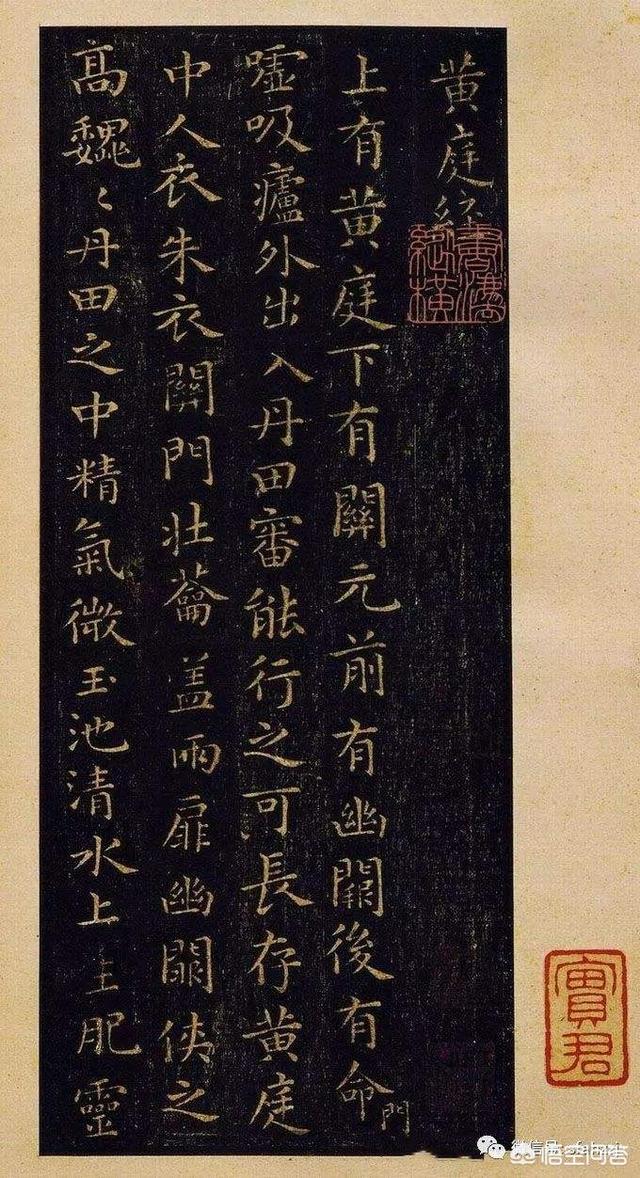 黄庭經
上有黄庭下有關元前有幽闕後有命門
嘘吸廬外出入丹田審能行之可長存黄庭
中人衣朱衣關門壯蘥盖兩扉幽闕俠之
高巍〻丹田之中精氣微玉池清水上生肥靈
寶君
悟空问答